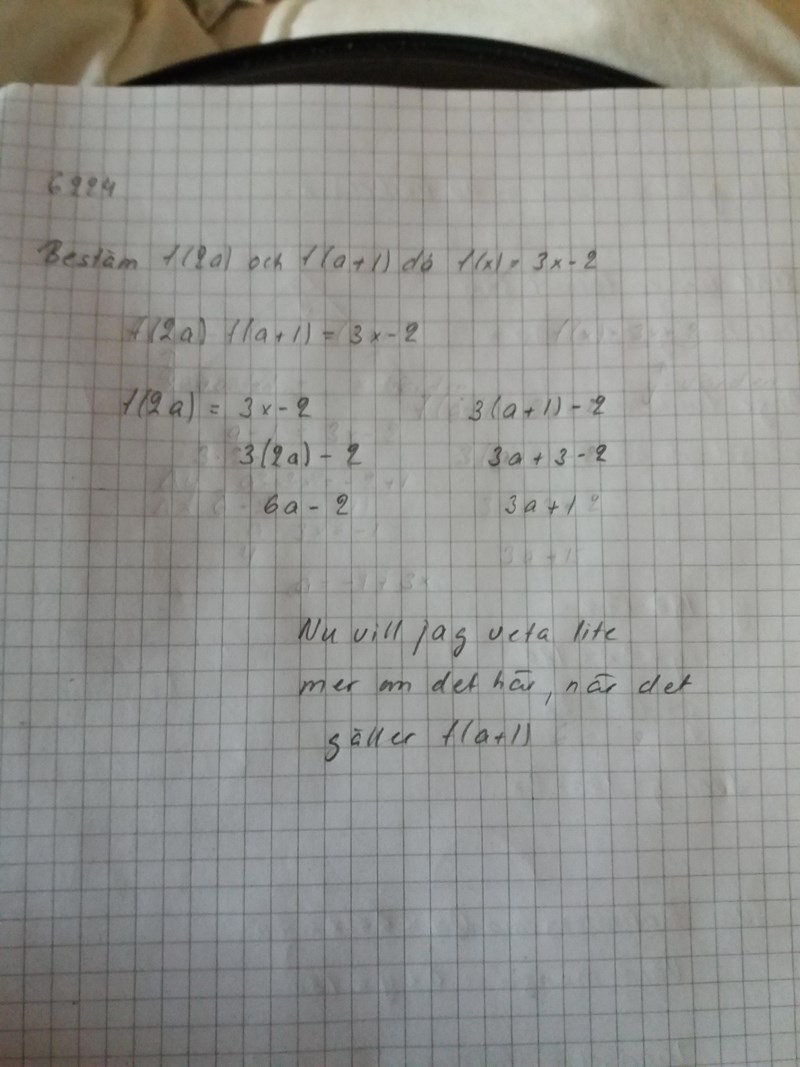 6224
Bestäm f(2a) och f(a+1) då f(x) = 3x-2
f(2a) f(a+1) = 3x-2
f(2a) = 3x-2
3(2a) - 2
6a - 2
3(a+1) - 2
3a + 3 - 2
3a + 1
Nu vill jag veta lite
mer om det här, när det
gäller f(a+1)